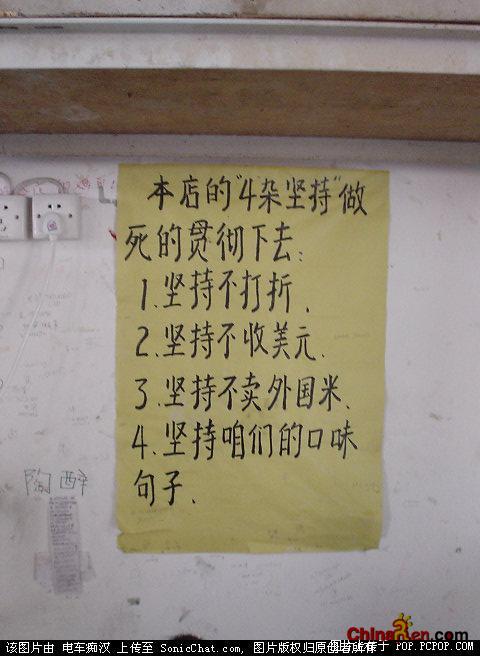 本店的"4杂坚持"做
死的贯彻下去:
1.坚持不打折.
2.坚持不收美元.
3.坚持不卖外国米.
4.坚持咱们的口味
句子.
陶醉
China

该图片由 电车痴汉 上传至 SonicChat.com, 图片版权归原创者所有
POP.PCPOP.COM